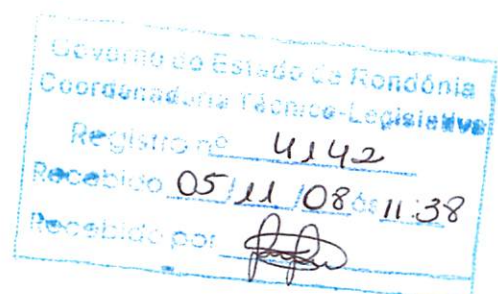 Governo do Estado de Rondônia
Coordenadoria Técnico-Legislativa
Registro nº 4142
Recebido 05/11/08 às 11:38
Recebido por